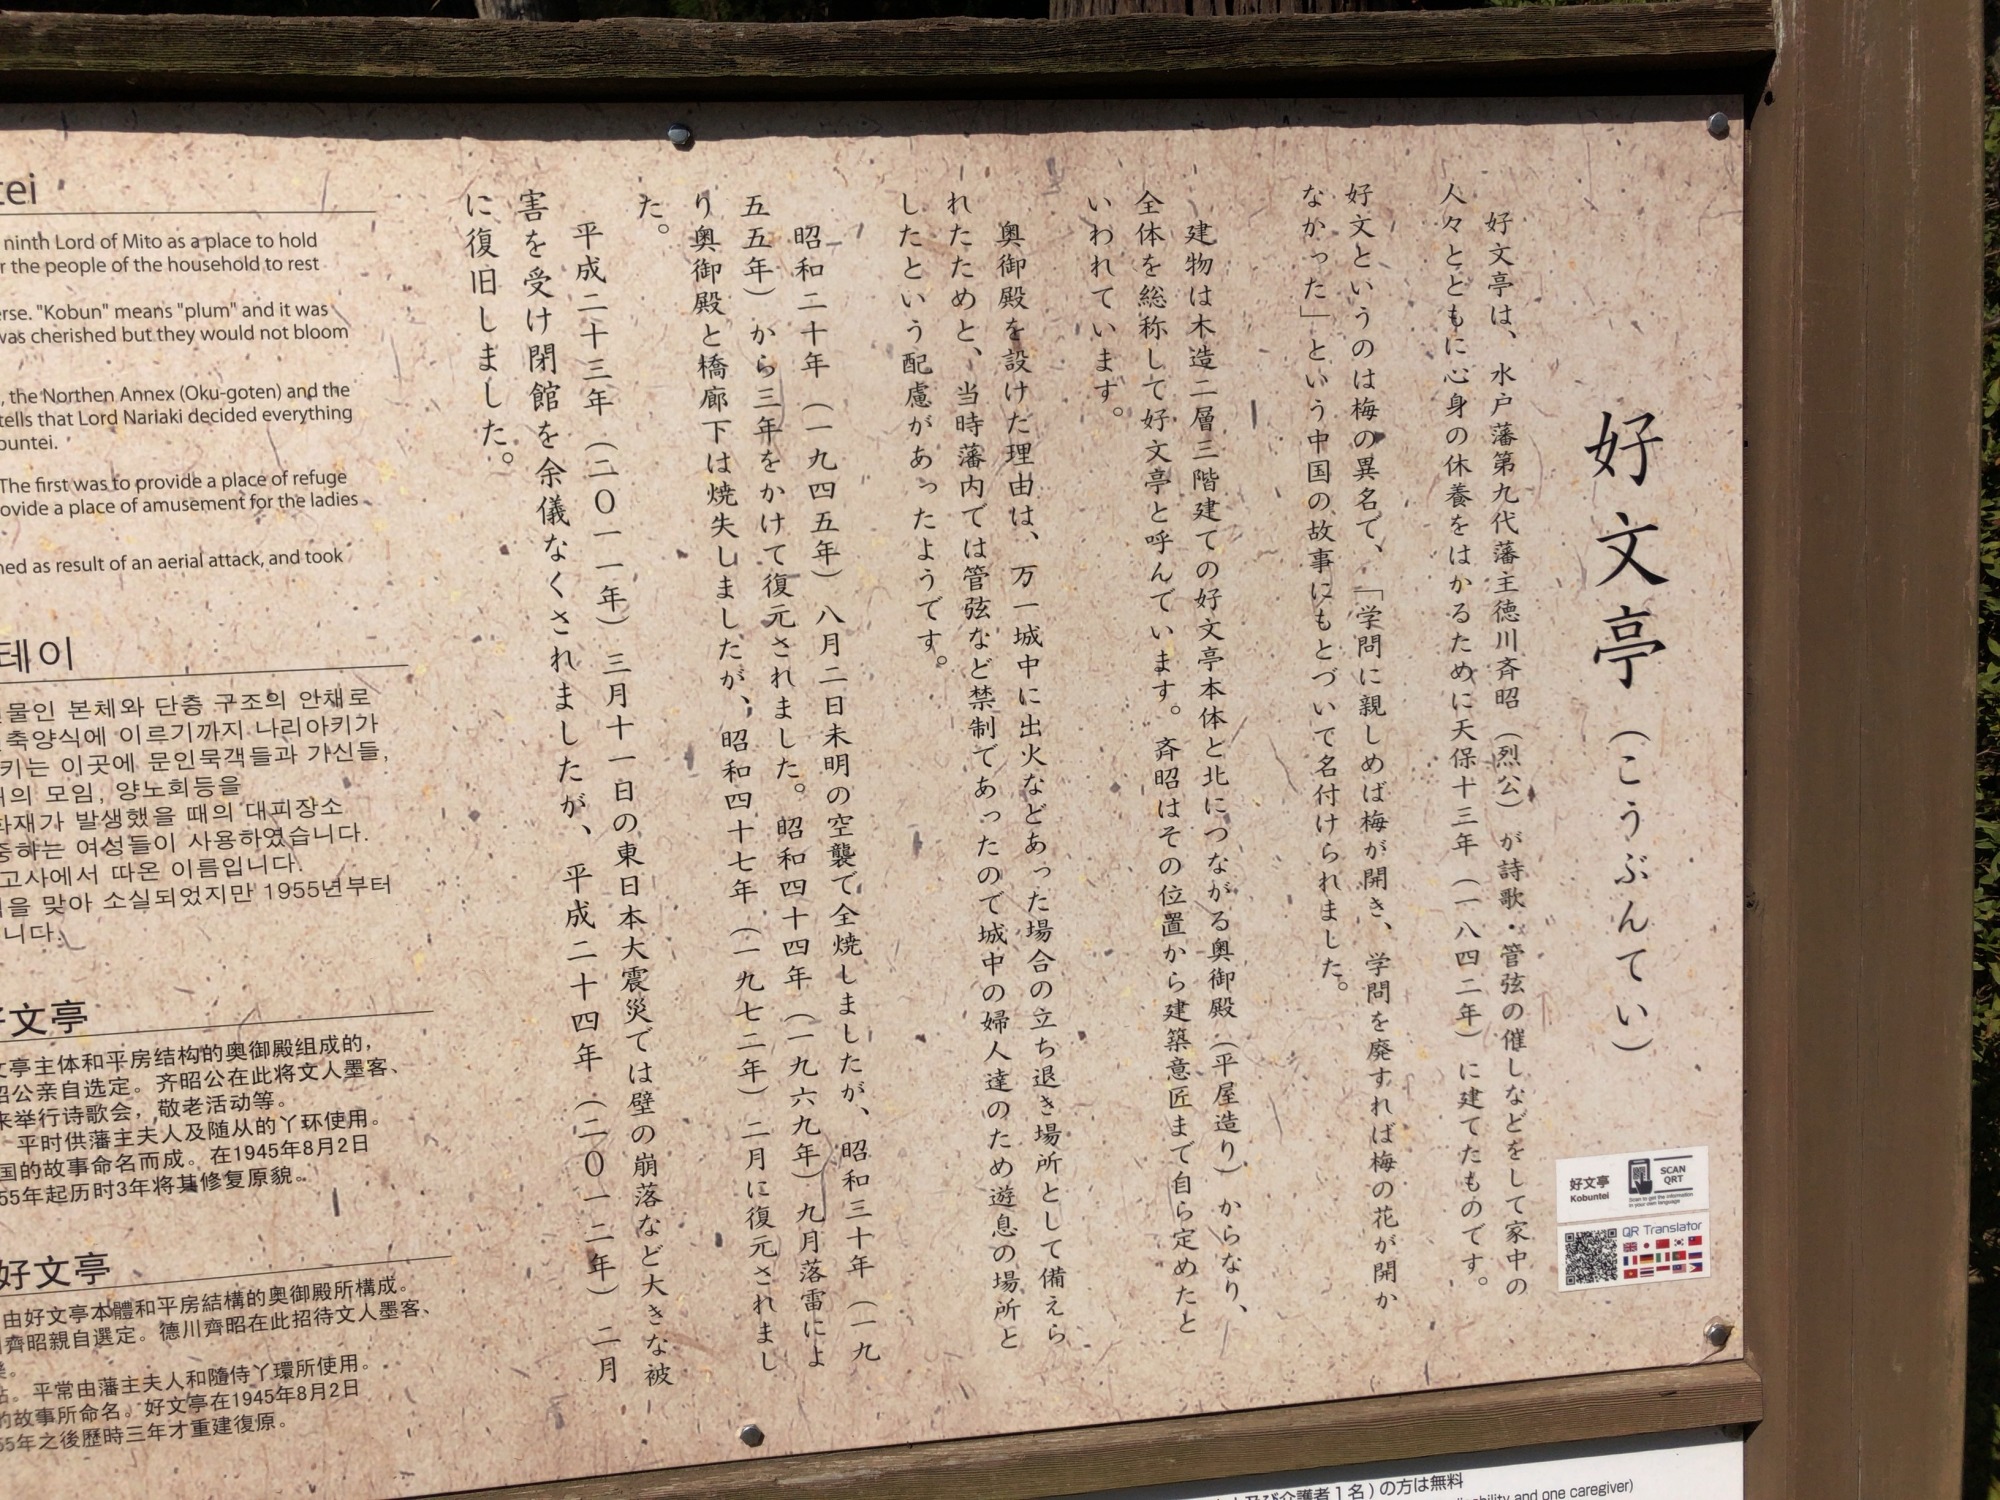 好文亭（こうぶんてい）
好文亭は、水戸藩第九代藩主徳川斉昭（烈公）が詩歌・管弦の催しなどをして家中の
人々とともに心身の休養をはかるために天保十三年（一八四二年）に建てたものです。
好文というのは梅の異名で、「学問に親しめば梅が開き、学問を廃すれば梅の花が開か
なかった」という中国の故事にもとづいて名付けられました。
建物は木造二層三階建ての好文亭本体と北につながる奥御殿（平屋造り）からなり、
全体を総称して好文亭と呼んでいます。斉昭はその位置から建築意匠まで自ら定めたと
いわれています。
奥御殿を設けた理由は、万一城中に出火などあった場合の立ち退き場所として備えら
れたためと、当時藩内では管弦など禁制であったので城中の婦人達のため遊息の場所と
したという配慮があったようです。
昭和二十年（一九四五年）八月二日未明の空襲で全焼しましたが、昭和三十年（一九
五五年）から三年をかけて復元されました。昭和四十四年（一九六九年）九月落雷によ
り奥御殿と橋廊下は焼失しましたが、昭和四十七年（一九七二年）二月に復元されまし
た。
平成二十三年（二〇一一年）三月十一日の東日本大震災では壁の崩落など大きな被
害を受け閉館を余儀なくされましたが、平成二十四年（二〇一二年）二月
に復旧しました。
好文亭
Kobuntei
SCAN
QRT
Scan to get the information
in your own language
QR Translator
tei
ninth Lord of Mito as a place to hold
r the people of the household to rest
erse. "Kobun" means "plum" and it was
was cherished but they would not bloom
, the Northen Annex (Oku-goten) and the
tells that Lord Nariaki decided everything
buntei.
The first was to provide a place of refuge
ovide a place of amusement for the ladies
ned as result of an aerial attack, and took
테이
물인 본체와 단층 구조의 안채로
축양식에 이르기까지 나리아키가
키는 이곳에 문인묵객들과 가신들,
의 모임, 양노회등을
화재가 발생했을 때의 대피장소
중하는 여성들이 사용하였습니다.
고사에서 따온 이름입니다.
을 맞아 소실되었지만 1955년부터
니다.
好文亭
文亭主体和平房结构的奥御殿组成的，
昭公亲自选定。齐昭公在此将文人墨客、
来举行诗歌会，敬老活动等。
平时供藩主夫人及随从的丫环使用。
国的故事命名而成。在1945年8月2日
55年起历时3年将其修复原貌。
好文亭
由好文亭本體和平房結構的奧御殿所構成。
川齊昭親自選定。德川齊昭在此招待文人墨客、
。
站。平常由藩主夫人和隨侍丫環所使用。
的故事所命名。好文亭在1945年8月2日
55年之後歷時三年才重建復原。
及び介護者１名）の方は無料
bility and one caregiver)